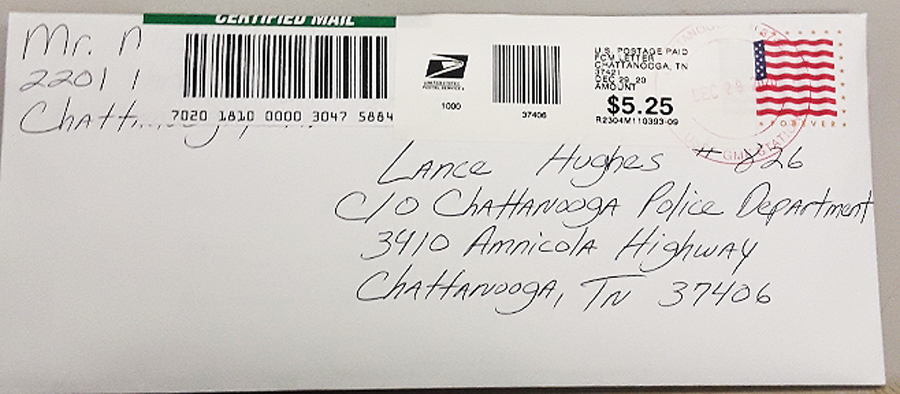 CERTIFIED MAIL
7020 1810 0000 3047 5884
Mr.
2201
UNITED STATES
POSTAL SERVICE
1000
37406
U.S. POSTAGE PAID
FCM LETTER
CHATTANOOGA, TN
37421
DEC 29, 20
AMOUNT
$5.25
R2304M110393-09
DEC 29
GMF STATION
FOREVER
Lance Hughes # 826
C/O Chattanooga Police Department
3410 Amnicola Highway
Chattanooga, TN 37406